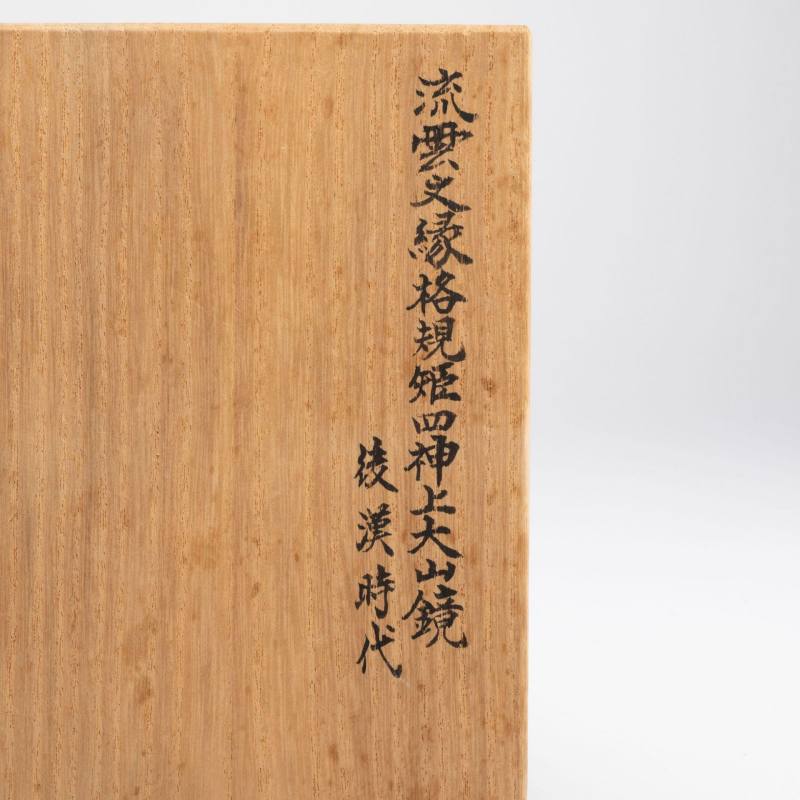 流雲文縁格規矩四神上大山鏡
後漢時代